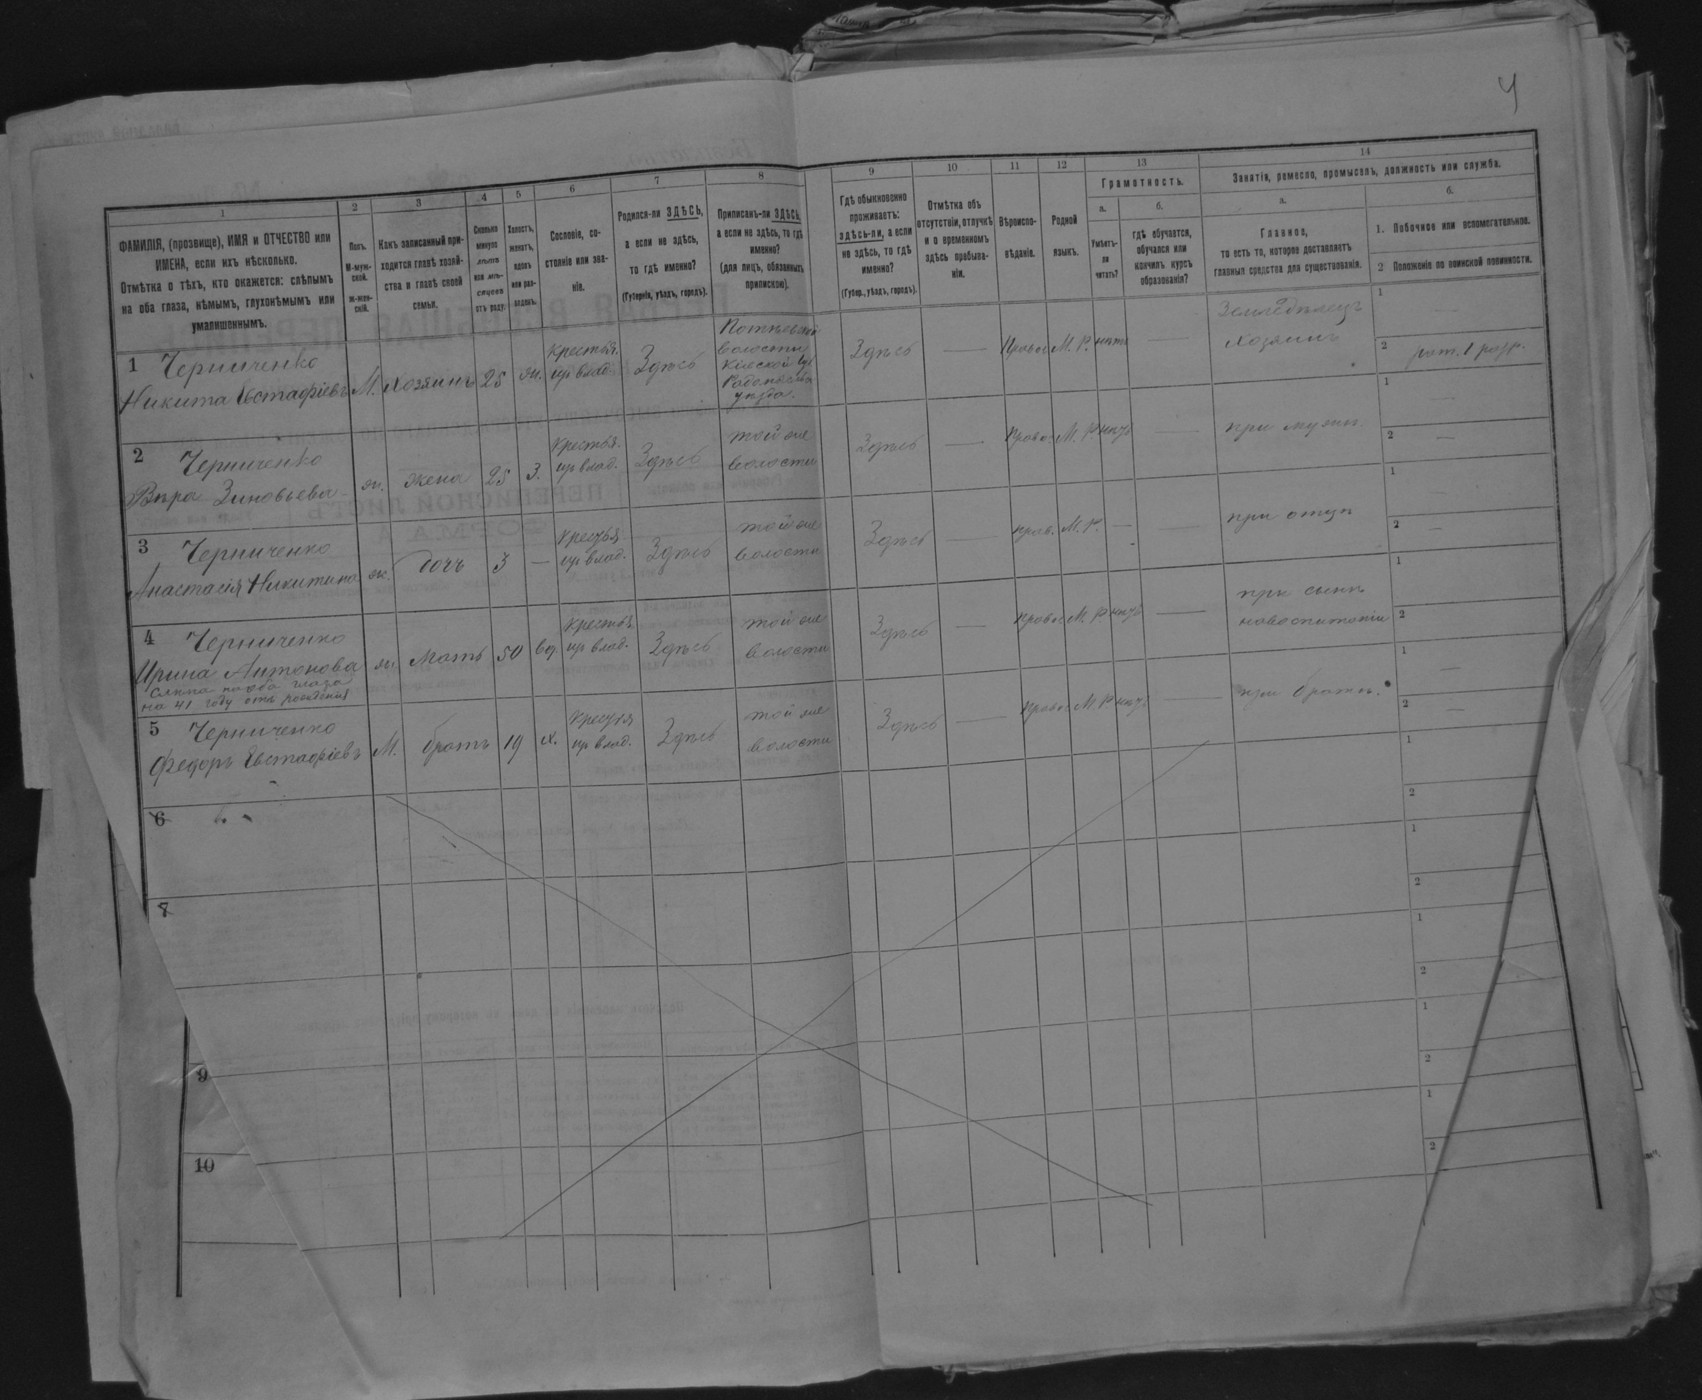 4
1
2
3
4
5
6
7
8
9
10
11
12
13
14
ФАМИЛІЯ, (прозвище), ИМЯ и ОТЧЕСТВО или
ИМЕНА, если ихъ нѣсколько.
Отмѣтка о тѣхъ, кто окажется: слѣпымъ
на оба глаза, нѣмымъ, глухонѣмымъ или
умалишеннымъ.
Полъ.
М-муж-
ской.
ж-жен-
скій.
Какъ записанный при-
ходится главѣ хозяй-
ства и главѣ своей
семьи.
Сколько
минуло
лѣтъ
или мѣ-
сяцевъ
отъ роду.
Холостъ,
женатъ,
вдовъ
или раз-
веденъ.
Сословіе, со-
стояніе или зва-
ніе.
Родился-ли ЗДѢСЬ,
а если не здѣсь,
то гдѣ именно?
(Губернія, уѣздъ, городъ).
Приписанъ-ли ЗДѢСЬ,
а если не здѣсь, то гдѣ
именно?
(для лицъ, обязанныхъ
припискою).
Гдѣ обыкновенно
проживаетъ:
здѣсь-ли, а если
не здѣсь, то гдѣ
именно?
(Губер., уѣздъ, городъ).
Отмѣтка объ
отсутствіи, отлучкѣ
и о временномъ
здѣсь пребыва-
ніи.
Вѣроиспо-
вѣданіе.
Родной
языкъ.
Грамотность.
а.
Умѣетъ-
ли
читать?
б.
гдѣ обучается,
обучался или
кончилъ курсъ
образованія?
Занятія, ремесло, промыселъ, должность или служба.
а.
Главное,
то есть то, которое доставляетъ
главныя средства для существованія.
б.
1. Побочное или вспомогательное.
2 Положеніе по воинской повинности.
1 Черниченко
Никита Евстафіевъ
М. Хозяинъ 25 ж.
крестья.
изъ влад.
Здѣсь
волости
Кіевской губ
уѣзда.
Здѣсь — Правос М. Р. нѣтъ —
Земледѣлецъ
хозяинъ
1 —
2 рат. 1 разр.
2 Черниченко
Вѣра Зиновьева
ж. жена 25 З.
крестья.
изъ влад.
Здѣсь
той же
волости
Здѣсь — Право М. Р нѣтъ —
при мужѣ
1 —
2 —
3 Черниченко
Анастасія Никитина
ж. дочь 3 —
крестья
изъ влад.
Здѣсь
той же
волости
Здѣсь — Прав. М. Р. — —
при отцѣ
1 —
2 —
4 Черниченко
Ирина Антонова
слѣпа на оба глаза
на 41 году отъ рожденія
ж. Мать 50 вд.
крестья.
изъ влад.
Здѣсь
той же
волости
Здѣсь — Право М. Р нѣтъ —
при сынѣ
1
2
5 Черниченко
Федоръ Евстафіевъ
М. братъ 19 х.
крестья
изъ влад.
Здѣсь
той же
волости
Здѣсь — Право М Р нѣтъ —
при братѣ.
1 —
2 —
6
1
2
7
1
2
1
2
9
1
2
10
1
2